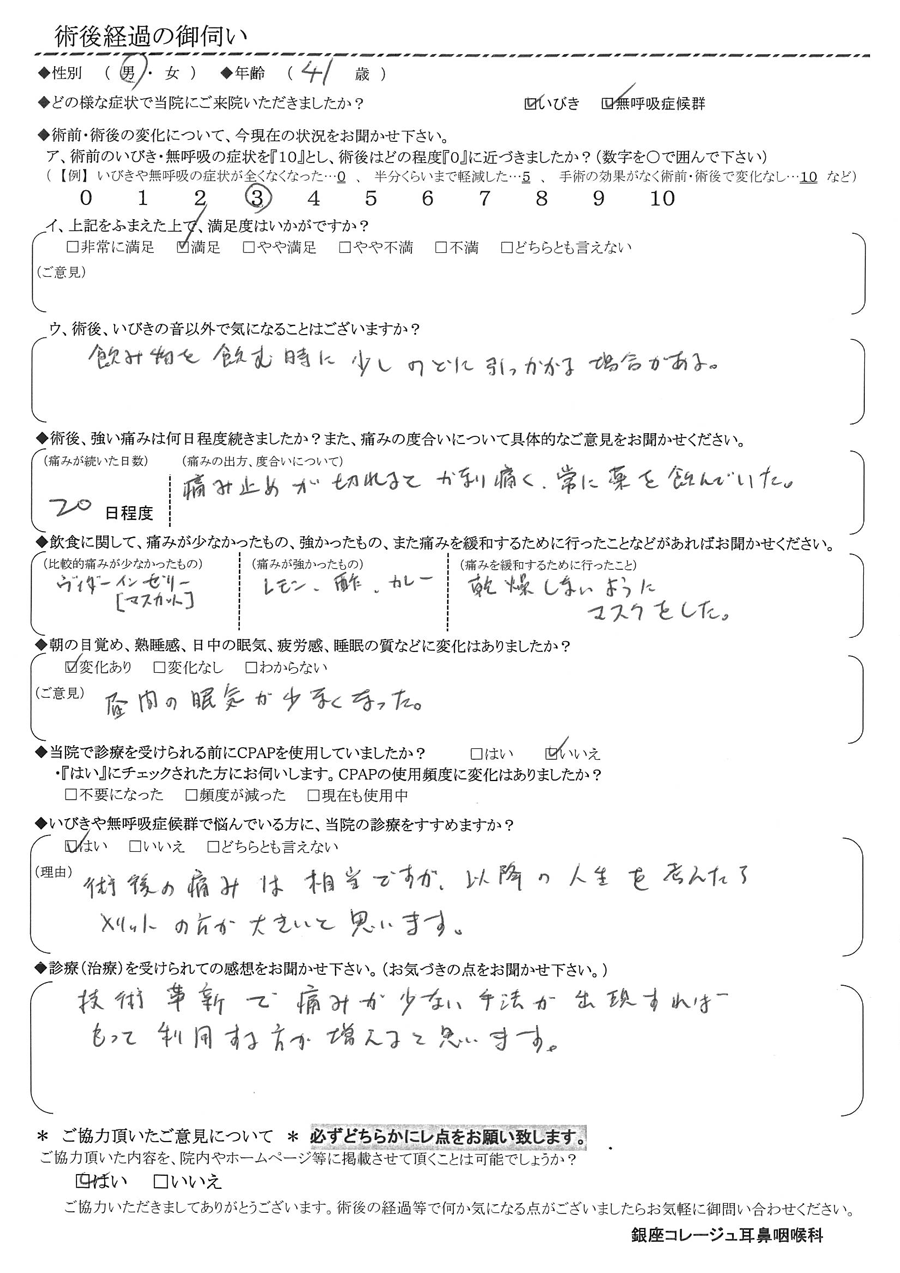 術後経過の御伺い
◆性別 ( 男 ・ 女 ) ◆年齢 ( 41 歳 )
◆どの様な症状で当院にご来院いただきましたか? ☑いびき ☑無呼吸症候群
◆術前・術後の変化について、今現在の状況をお聞かせ下さい。
ア、術前のいびき・無呼吸の症状を『10』とし、術後はどの程度『0』に近づきましたか?(数字を○で囲んで下さい)
( 【例】 いびきや無呼吸の症状が全くなくなった…0 、 半分くらいまで軽減した…5 、 手術の効果がなく術前・術後で変化なし…10 など)
0 1 2 3 4 5 6 7 8 9 10
イ、上記をふまえた上で、満足度はいかがですか?
□非常に満足 ☑満足 □やや満足 □やや不満 □不満 □どちらとも言えない
(ご意見)
ウ、術後、いびきの音以外で気になることはございますか?
飲み物を飲む時に少しのどに引っかかる場合がある。
◆術後、強い痛みは何日程度続きましたか?また、痛みの度合いについて具体的なご意見をお聞かせください。
(痛みが続いた日数) (痛みの出方、度合いについて)
痛み止めが切れるとかなり痛く、常に薬を飲んでいた。
20 日程度
◆飲食に関して、痛みが少なかったもの、強かったもの、また痛みを緩和するために行ったことなどがあればお聞かせください。
(比較的痛みが少なかったもの) (痛みが強かったもの) (痛みを緩和するために行ったこと)
ウィダーインゼリー レモン、酢、カレー 乾燥しないように
[マスカット] マスクをした。
◆朝の目覚め、熟睡感、日中の眠気、疲労感、睡眠の質などに変化はありましたか?
☑変化あり □変化なし □わからない
(ご意見) 昼間の眠気が少なくなった。
◆当院で診療を受けられる前にCPAPを使用していましたか? □はい ☑いいえ
・『はい』にチェックされた方にお伺いします。CPAPの使用頻度に変化はありましたか?
□不要になった □頻度が減った □現在も使用中
◆いびきや無呼吸症候群で悩んでいる方に、当院の診療をすすめますか?
☑はい □いいえ □どちらとも言えない
(理由) 術後の痛みは相当ですが、以降の人生を考えたら
メリットの方が大きいと思います。
◆診療(治療)を受けられての感想をお聞かせ下さい。(お気づきの点をお聞かせ下さい。)
技術革新で痛みが少ない手法が出現すれば
もって利用する方が増えると思います。
* ご協力頂いたご意見について * 必ずどちらかにレ点をお願い致します。
ご協力頂いた内容を、院内やホームページ等に掲載させて頂くことは可能でしょうか?
☑はい □いいえ
ご協力いただきましてありがとうございます。術後の経過等で何か気になる点がございましたらお気軽に御問い合わせください。
銀座コレージュ耳鼻咽喉科